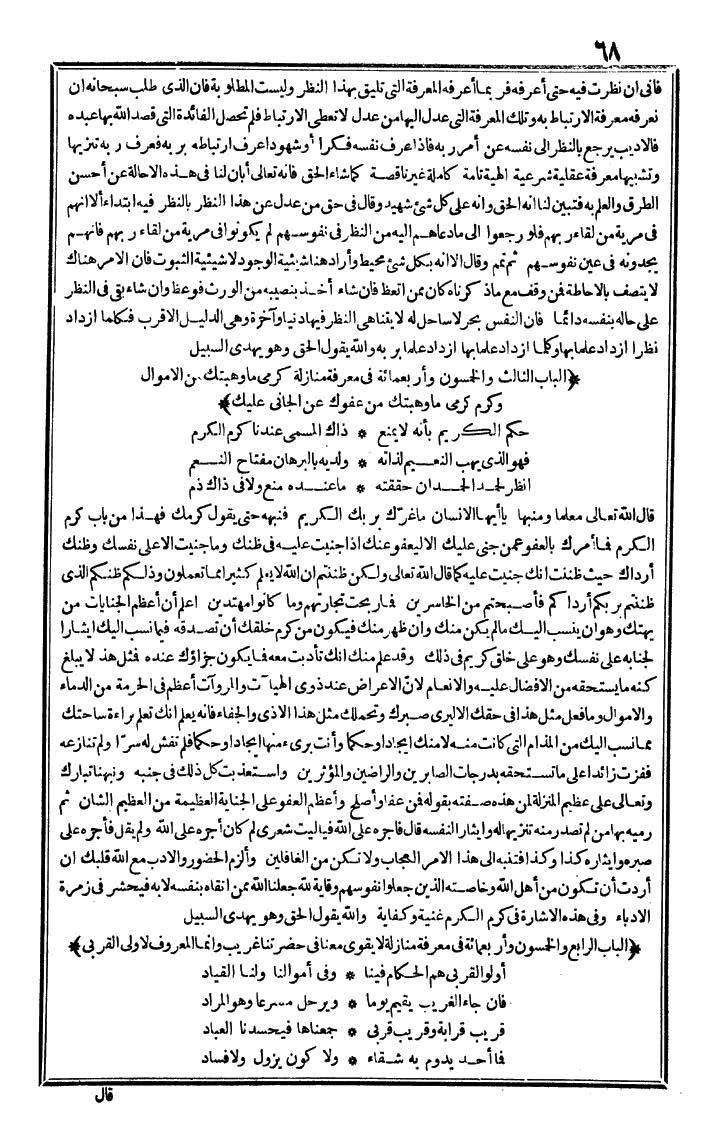 ٦٨
فانى ان نظرت فيه حتى أعرفه فربما أعرفه المعرفة التى تليق بهذا النظر وليست المطلوبة فان الذى طلب سبحانه ان
نعرفه معرفة الارتباط به وتلك المعرفة التى عدل اليها من عدل لا تعطى الارتباط فلم تحصل الفائدة التى قصد الله بها عبده
فالاديب يرجع بالنظر الى نفسه عن أمر ربه فاذا عرف نفسه فكرا أو شهودا عرف ارتباطه بربه فعرف ربه تنزيها
وتشبيها معرفة عقلية شرعية الهية تامة كاملة غير ناقصة كما شاء الحق فانه تعالى أبان لنا فى هذه الاحالة عن أحسن
الطرق والعلم به فتبين لنا انه الحق وانه على كل شئ شهيد وقال فى حق من عدل عن هذا النظر بالنظر فيه ابتداء ألا انهم
فى مرية من لقاء ربهم فلو رجعوا الى ما دعاهم اليه من النظر فى نفوسهم لم يكونوا فى مرية من لقاء ربهم فانهم
يجدونه فى عين نفوسهم ثم تمم وقال الا انه بكل شئ محيط وأراد هنا شيئية الوجود لا شيئية الثبوت فان الامر هناك
لا يتصف بالاحاطة فمن وقف مع ما ذكرناه كان ممن اتعظ فان شاء أخذ بنصيبه من الورث فوعظ وان شاء بقى فى النظر
على حاله بنفسه دائما فان النفس بحر لا ساحل له لا يتناهى النظر فيها دنيا وآخرة وهى الدليل الاقرب فكلما ازداد
نظرا ازداد علما بها وكلما ازداد علما بها ازداد علما بربه والله يقول الحق وهو يهدى السبيل
﴿الباب الثالث والخمسون وأربعمائة فى معرفة منازلة كرمى ما وهبتك من الاموال
وكرم كرمى ما وهبتك من عفوك عن الجانى عليك﴾
حكم الكريم بأنه لا يمنع * ذاك المسمى عندنا كرم الكرم
فهو الذى يهب النعيم لذاته * ولديه بالبرهان مفتاح النعم
انظر لحد الحدان حققته * ما عنده منع ولا فى ذاك ذم
قال الله تعالى معلما ومنبها يا أيها الانسان ما غرّك بربك الكريم فنبهه حتى يقول كرمك فهذا من باب كرم
الكرم فما أمرك بالعفو عمن جنى عليك الا ليعفو عنك اذا جنيت عليه فى ظنك وما جنيت الا على نفسك وظنك
أرداك حيث ظننت انك جنيت عليه كما قال الله تعالى ولكن ظننتم ان الله لا يعلم كثيرا مما تعملون وذلكم ظنكم الذى
ظننتم بربكم أرداكم فأصبحتم من الخاسرين فما ربحت تجارتهم وما كانوا مهتدين اعلم أن أعظم الجنايات من
يهتك وهو ان ينسب اليك ما لم يكن منك وان ظهر منك فيكون من كرم خلقك أن تصدقه فيما نسب اليك ايثارا
لجنابه على نفسك وهو على خلق كريم فى ذلك وقد علم منك انك تأدبت معه فما يكون جزاؤك عنده فمثل هذا لا يبلغ
كنه ما يستحقه من الافضال عليه والانعام لانّ الاعراض عند ذوى الهيآت والمروآت أعظم فى الحرمة من الدماء
والاموال وما فعل مثل هذا فى حقك الا ليرى صبرك وتحملك مثل هذا الاذى والجفاء فانه يعلم انك تعلم براءة ساحتك
مما نسب اليك من المذام التى كانت منه لا منك ايجادا وحكما وأنت برىء منها ايجادا وحكما فلم تفش له سرّا ولم تنازعه
ففزت زائدا على ما تستحقه بدرجات الصابرين والراضين والمؤثرين واستعذبت كل ذلك فى جنبه ونبهنا تبارك
وتعالى على عظيم المنزلة لمن هذه صفته بقوله فمن عفا وأصلح وأعظم العفو على الجناية العظيمة من العظيم الشان ثم
رميه بها من لم تصدر منه تنزيها له وايثار النفسه قال فاجره على الله فياليت شعرى لم كان أجره على الله ولم يقل فأجره على
صبره وايثاره كذا وكذا فتنبه الى هذا الامر العجاب ولا تكن من الغافلين وألزم الحضور والادب مع الله قلبك ان
أردت أن تكون من أهل الله وخاصته الذين جعلوا نفوسهم وقاية لله جعلنا الله ممن اتقاه بنفسه لا به فيحشر فى زمرة
الادباء وفى هذه الاشارة فى كرم الكرم غنية وكفاية والله يقول الحق وهو يهدى السبيل
﴿الباب الرابع والخمسون وأربعمائة فى معرفة منازلة لا يقوى معنا فى حضرتنا غريب وانما المعروف لاولى القربى﴾
أولو القربى هم الحكام فينا * وفى أموالنا ولنا القياد
فان جاء الغريب يقيم يوما * ويرحل مسرعا وهو المراد
قريب قرابة وقريب قربى * جمعناها فيحسدنا العباد
فما أحد يدوم به شقاء * ولا كون يزول ولا فساد
قال